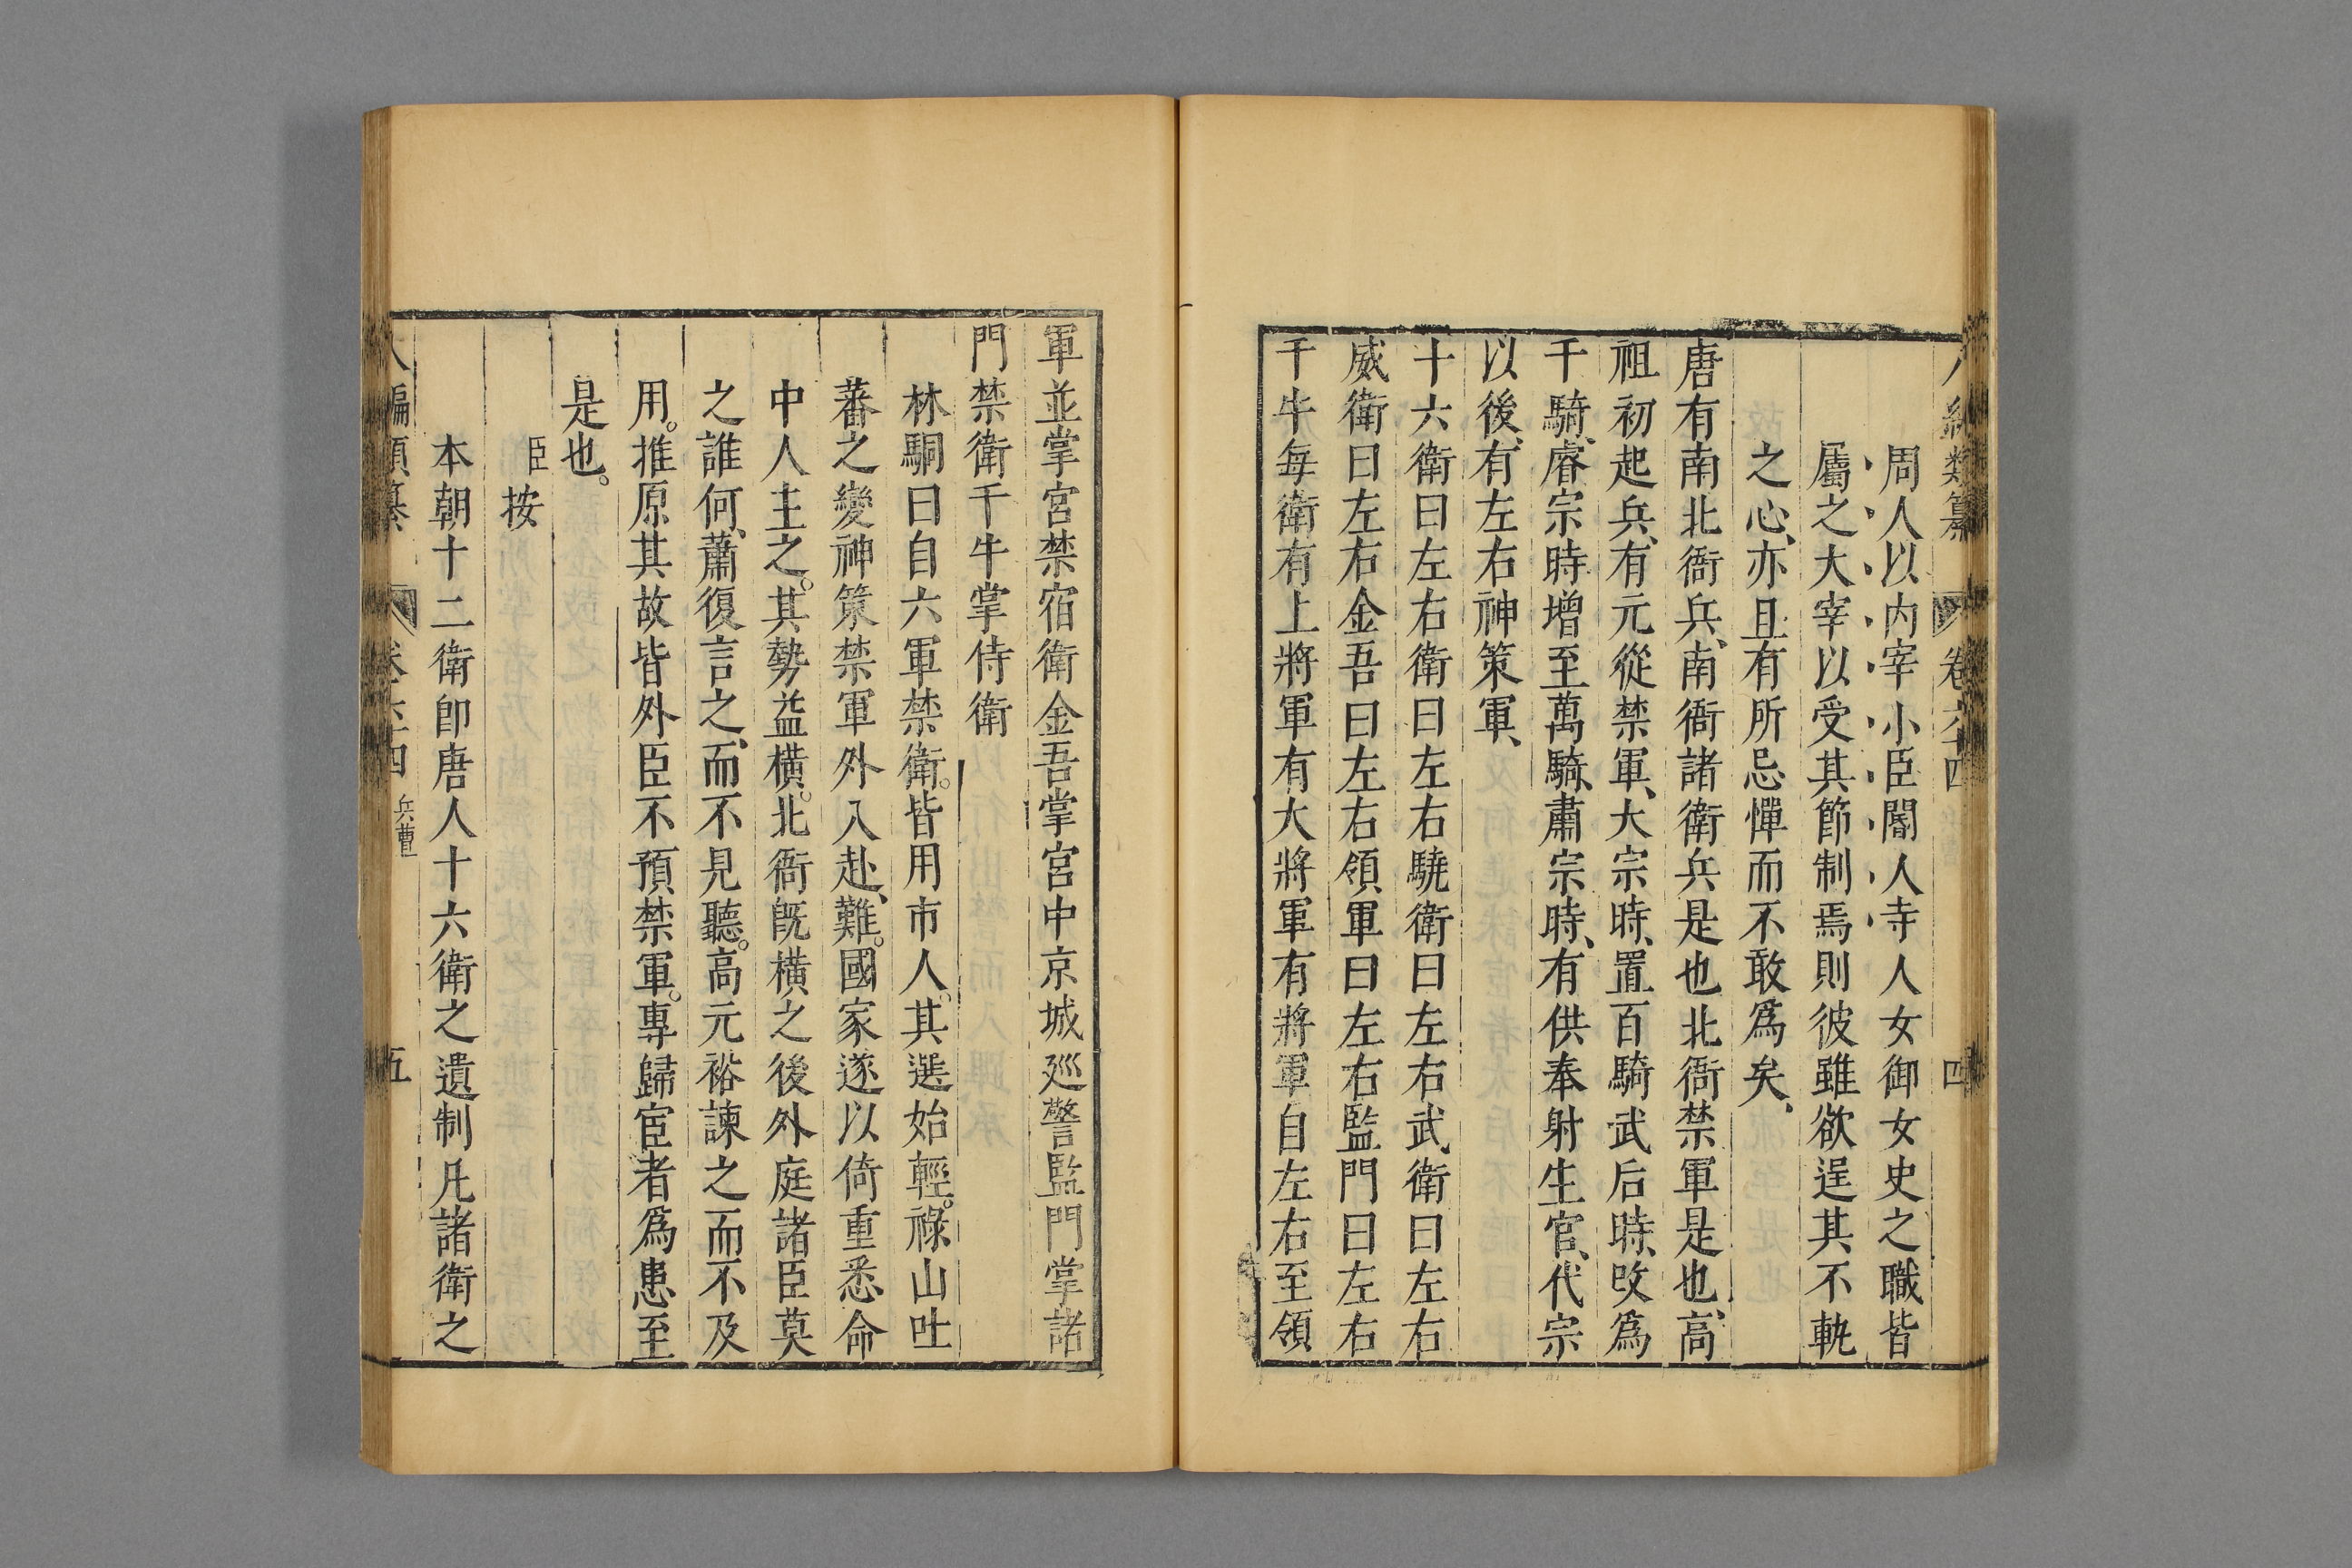 八編類纂 卷六十四 四
周人以内宰小臣閽人寺人女御女史之職皆
屬之大宰以受其節制焉則彼雖欲逞其不軌
之心、亦且有所忌憚而不敢爲矣、
唐有南北衙兵、南衙諸衛兵是也北衙禁軍是也、高
祖初起兵、有元從禁軍、大宗時、置百騎武后時、改爲
千騎、睿宗時增至萬騎、肅宗時、有供奉射生官、代宗
以後、有左右神策軍、
十六衛曰左右衛曰左右驍衛曰左右武衛曰左右
威衛曰左右金吾曰左右領軍曰左右監門曰左右
千牛每衛有上將軍有大將軍有將軍自左右至領
軍並掌宮禁宿衛金吾掌宮中京城廵警監門掌諸
門禁衛千牛掌侍衛
林駉曰自六軍禁衛。皆用市人。其選始輕。祿山吐
蕃之變神策禁軍外入赴、難。國家遂以倚重悉命
中人主之。其勢益橫。北衙旣橫之後外庭諸臣莫
之誰何、蕭復言之、而不見聽。高元裕諫之而不及
用。推原其故皆外臣不預禁軍。專歸宦者爲患至
是也。
臣按
本朝十二衛卽唐人十六衛之遺制凡諸衛之
八編類纂 卷六十四 兵曹 五